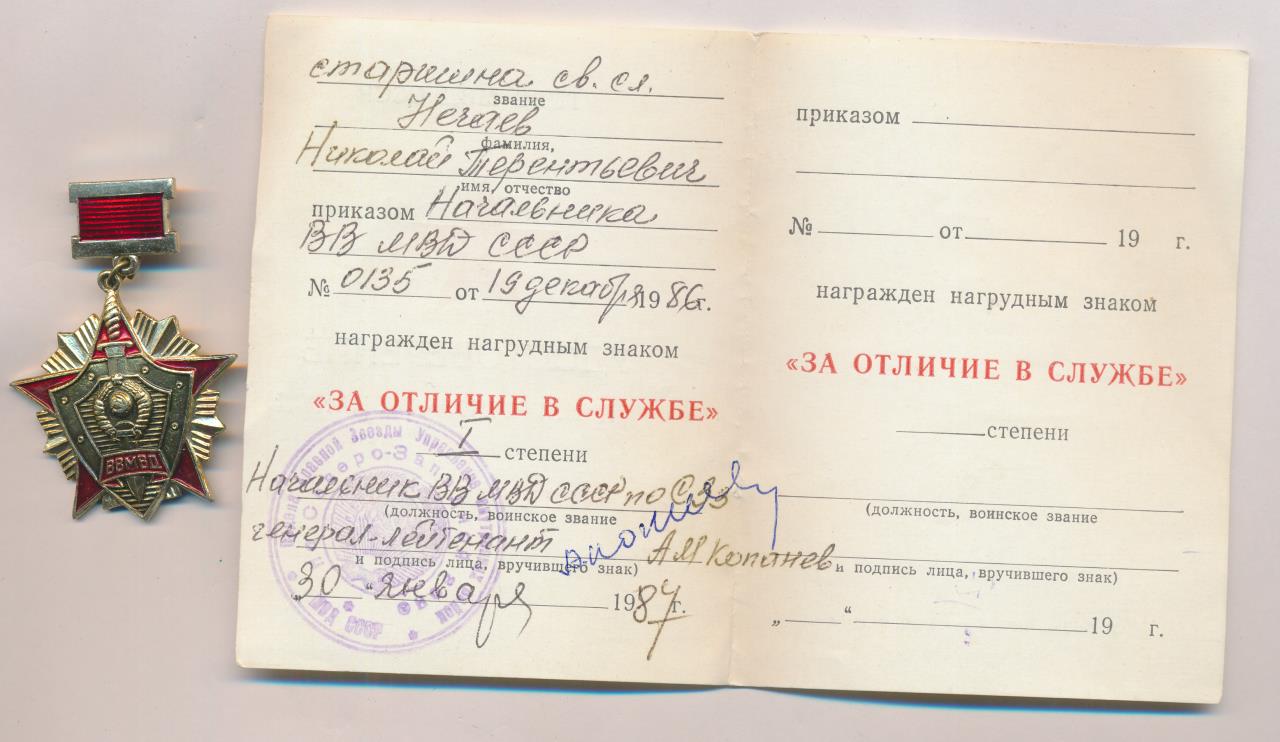 ВВМВД
старшина св. сл.
звание
Нечаев
фамилия,
Николай Терентьевич
имя, отчество
приказом Начальника
ВВ МВД СССР
№ 0135 от 19 декабря 1986г.
награжден нагрудным знаком
«ЗА ОТЛИЧИЕ В СЛУЖБЕ»
I степени
Начальник ВВ МВД СССР по СЗ
(должность, воинское звание
генерал-лейтенант А М Копанев
и подпись лица, вручившего знак)
„30 “ января 1987г.
Звезды
Северо-Зап
МВД СССР
приказом
№ от 19 г.
награжден нагрудным знаком
«ЗА ОТЛИЧИЕ В СЛУЖБЕ»
степени
(должность, воинское звание
и подпись лица, вручившего знак)
„ “ 19 г.